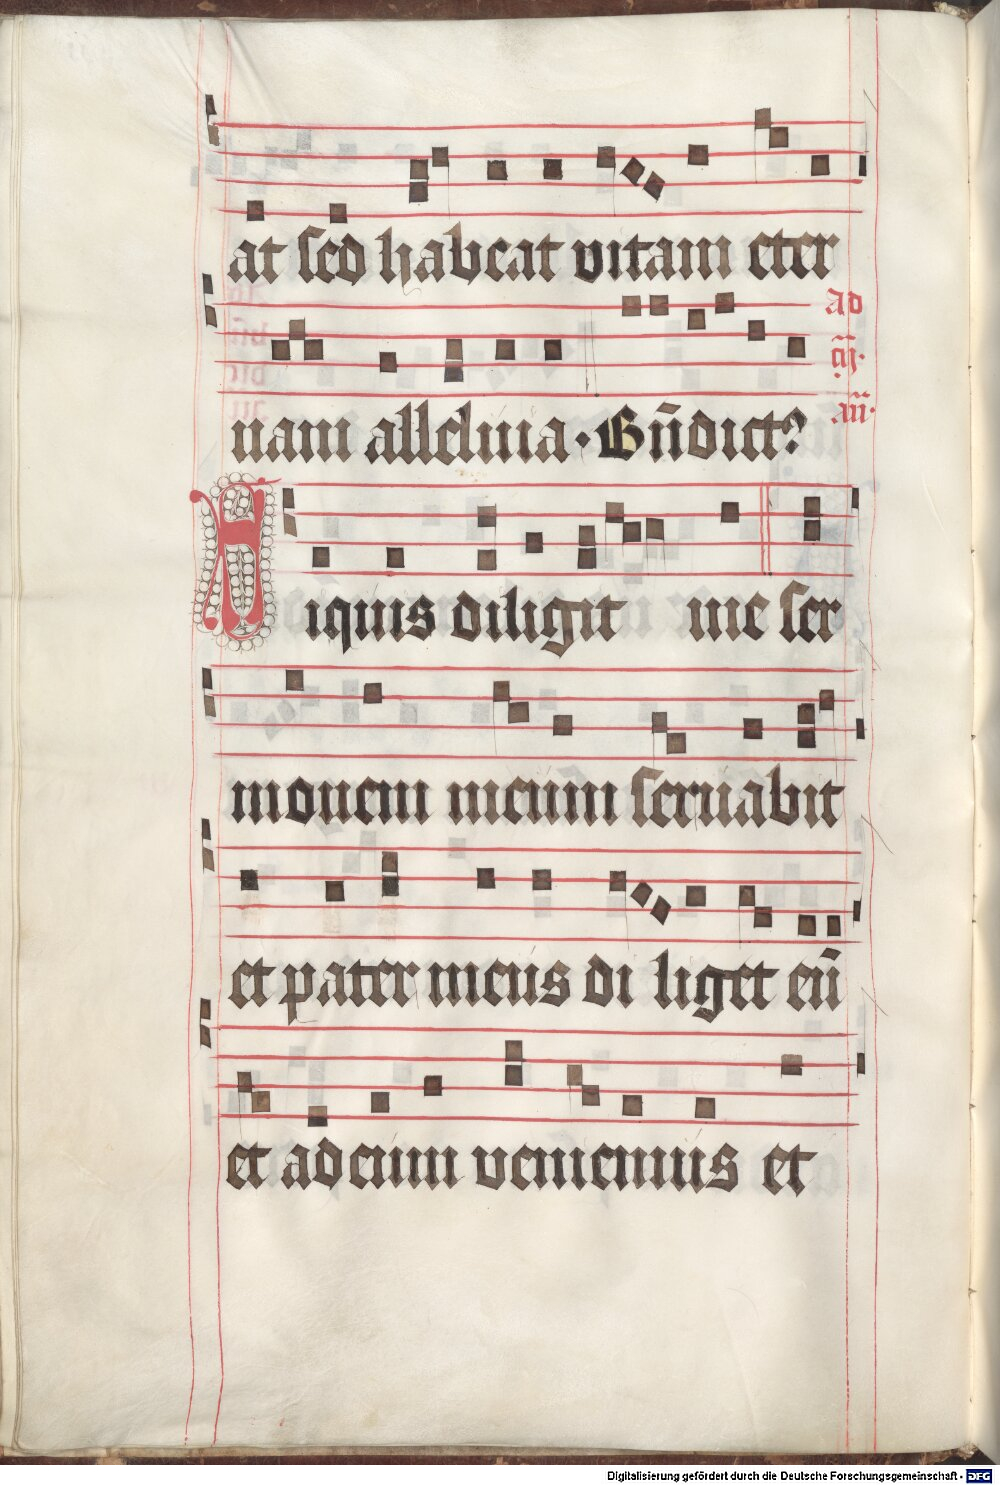 at sed habeat vitam eter
ad
nam alleluia · Bn̄dict?
cā·
an̄·
Siquis diligit me ser
monem meum seruabit
et pater meus di liget eū
et ad eum veniemus et
Digitalisierung gefördert durch die Deutsche Forschungsgemeinschaft - DFG